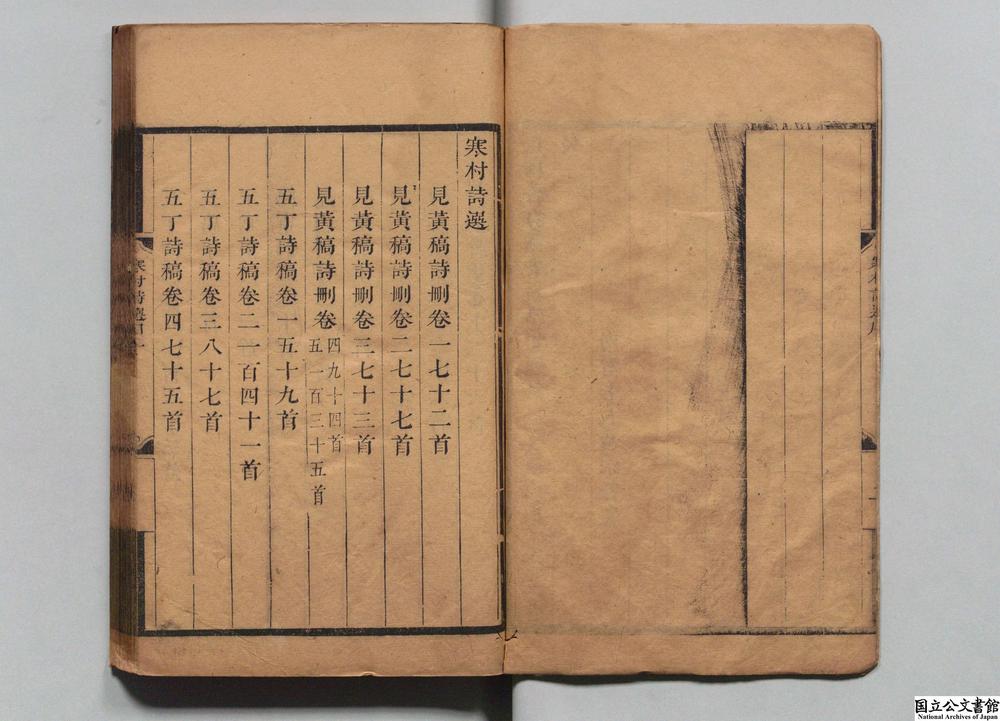 寒村詩選
見黄稿詩刪卷一七十二首
見黄稿詩刪卷二七十七首
見黄稿詩刪卷三七十三首
見黄稿詩刪卷四九十四首
五一百三十五首
五丁詩稿卷一五十九首
五丁詩稿卷二一百四十一首
五丁詩稿卷三八十七首
五丁詩稿卷四七十五首
寒村詩選目 一
国立公文書館
National Archives of Japan